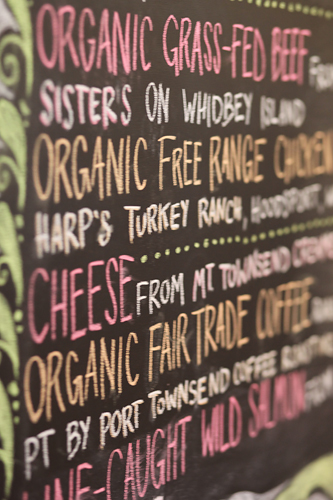 ORGANIC GRASS-FED BEEF FROM
SISTERS ON WHIDBEY ISLAND
ORGANIC FREE RANGE CHICKEN
HARP'S TURKEY RANCH, HOODSPORT,
CHEESE FROM MT TOWNSEND CREAMERY
ORGANIC FAIR TRADE COFFEE
PT BY PORT TOWNSEND COFFEE
LINE-CAUGHT WILD SALMON